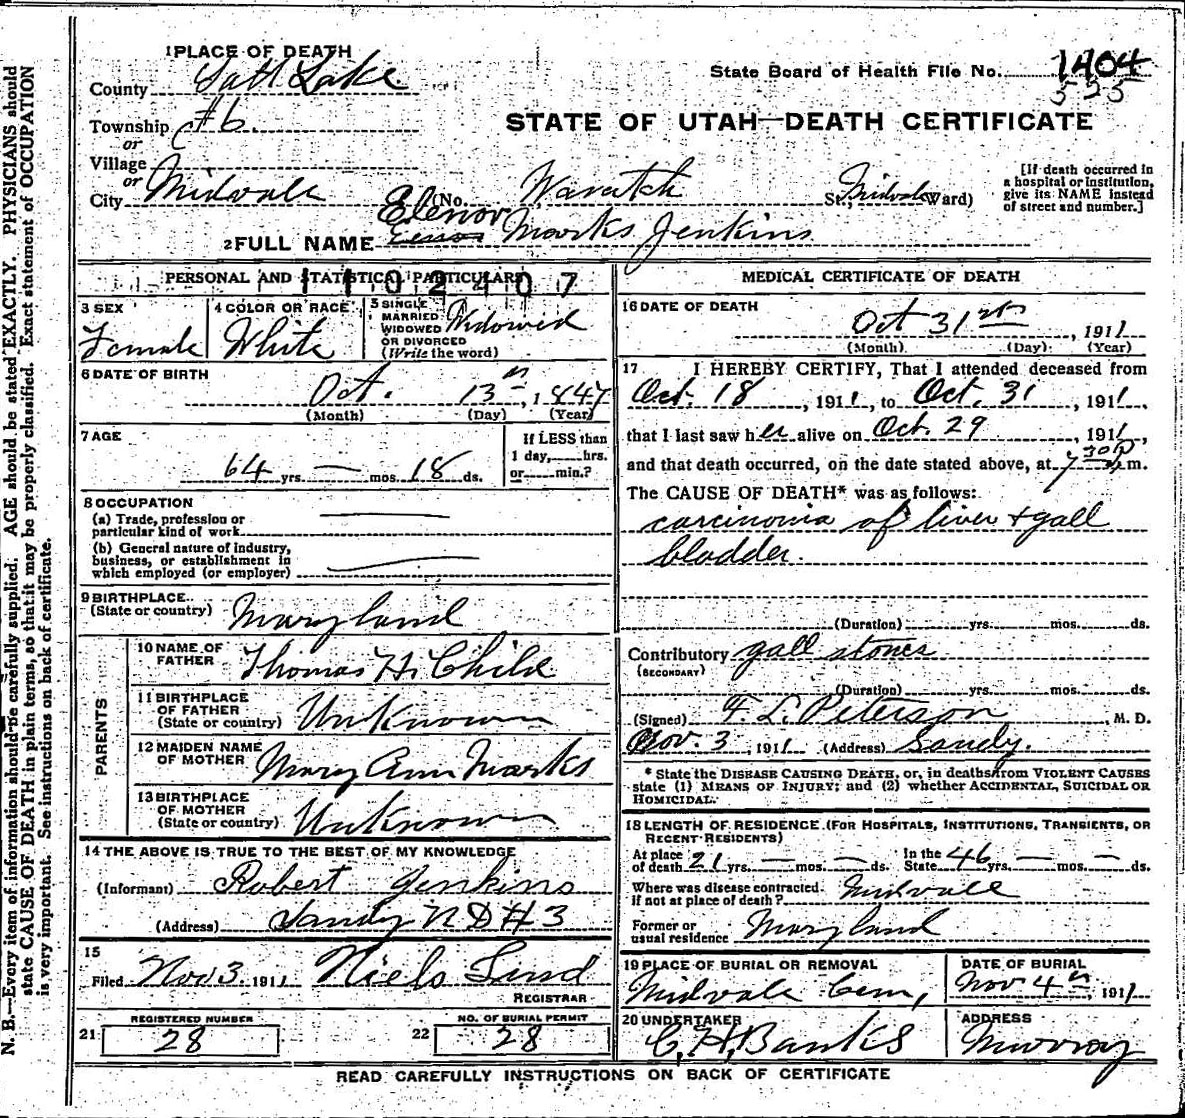 1 PLACE OF DEATH
County Salt Lake
Township #6.
or
Village
or
City Midvale (No. Wasatch St., Midvale Ward)
State Board of Health File No. 1404
525
STATE OF UTAH—DEATH CERTIFICATE
[If death occurred in
a hospital or institution,
give its NAME instead
of street and number.]
Elenor
2 FULL NAME Marks Jenkins
PERSONAL AND STATISTICAL PARTICULARS
1102407
3 SEX
Female
4 COLOR OR RACE
White
5 SINGLE
MARRIED
WIDOWED
OR DIVORCED
(Write the word)
Widowed
6 DATE OF BIRTH
Oct. 13th, 1847
(Month) (Day) (Year)
7 AGE
64 yrs. — mos. 18 ds.
If LESS than
1 day, hrs.
or min.?
8 OCCUPATION
(a) Trade, profession or
particular kind of work —
(b) General nature of industry,
business, or establishment in
which employed (or employer) —
9 BIRTHPLACE
(State or country) Maryland
PARENTS
10 NAME OF
FATHER Thomas H. Child
11 BIRTHPLACE
OF FATHER
(State or country) Unknown
12 MAIDEN NAME
OF MOTHER Mary Ann Marks
13 BIRTHPLACE
OF MOTHER
(State or country) Unknown
14 THE ABOVE IS TRUE TO THE BEST OF MY KNOWLEDGE
(Informant) Robert Jenkins
(Address) Sandy R D #3
15
Filed Nov 3 1911 Niels Lind
REGISTRAR
21 REGISTERED NUMBER
28
22 NO. OF BURIAL PERMIT
28
MEDICAL CERTIFICATE OF DEATH
16 DATE OF DEATH
Oct 31st, 1911
(Month) (Day) (Year)
17 I HEREBY CERTIFY, That I attended deceased from
Oct. 18, 1911, to Oct. 31, 1911,
that I last saw her alive on Oct. 29, 1911,
and that death occurred, on the date stated above, at 7 30 P m.
The CAUSE OF DEATH* was as follows:
carcinonia of liver + gall
bladder.
(Duration) yrs. mos. ds.
Contributory gall stones
(SECONDARY)
(Duration) yrs. mos. ds.
(Signed) F. L. Peterson M. D.
Nov. 3, 1911 (Address) Sandy.
* State the DISEASE CAUSING DEATH, or, in deaths from VIOLENT CAUSES
state (1) MEANS OF INJURY; and (2) whether ACCIDENTAL, SUICIDAL OR
HOMICIDAL.
18 LENGTH OF RESIDENCE (FOR HOSPITALS, INSTITUTIONS, TRANSIENTS, OR
RECENT RESIDENTS)
At place
of death 21 yrs. — mos. — ds. In the
State 46 yrs. — mos. — ds.
Where was disease contracted
if not at place of death? Midvale
Former or
usual residence Maryland
19 PLACE OF BURIAL OR REMOVAL
Midvale Cem,
DATE OF BURIAL
Nov 4th, 1911
20 UNDERTAKER
C. H. Banks
ADDRESS
Murray
READ CAREFULLY INSTRUCTIONS ON BACK OF CERTIFICATE
N. B.—Every item of information should be carefully supplied. AGE should be stated EXACTLY. PHYSICIANS should
state CAUSE OF DEATH in plain terms, so that it may be properly classified. Exact statement of OCCUPATION
is very important. See instructions on back of certificate.